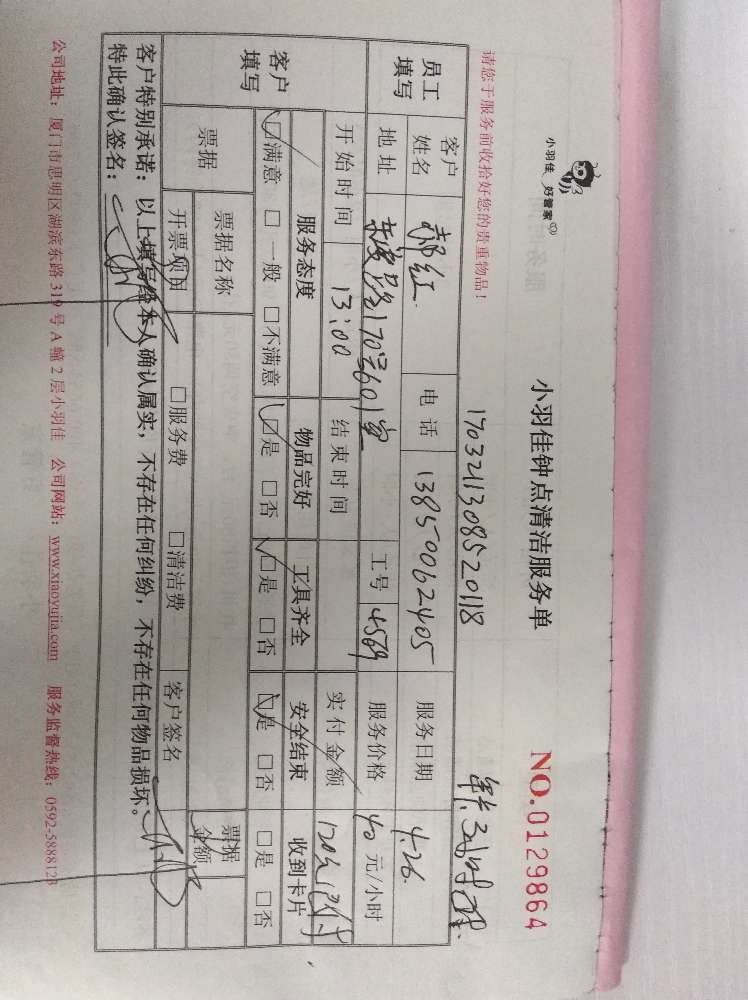 小羽佳 好管家
小羽佳钟点清洁服务单
NO.0129864
请您于服务前收拾好您的贵重物品！
1703211308520118
员工填写
客户姓名 郝红 电话 13850062405 服务日期 4.26
地址 170号601室 工号 4569 服务价格 40 元/小时
开始时间 13:00 结束时间 实付金额 120元
客户填写
服务态度 物品完好 工具齐全 安全结束 收到卡片
☑满意 □一般 □不满意 ☑是 □否 ☑是 □否 ☑是 □否 □是 □否
票据 票据名称 票据金额
开票项目 □服务费 □清洁费 客户签名
客户特别承诺：以上填写经本人确认属实，不存在任何纠纷，不存在任何物品损坏。
特此确认签名：
公司地址：厦门市思明区湖滨东路 319 号 A 幢 2 层小羽佳 公司网站：www.xiaoyujia.com 服务监督热线：0592-5888123